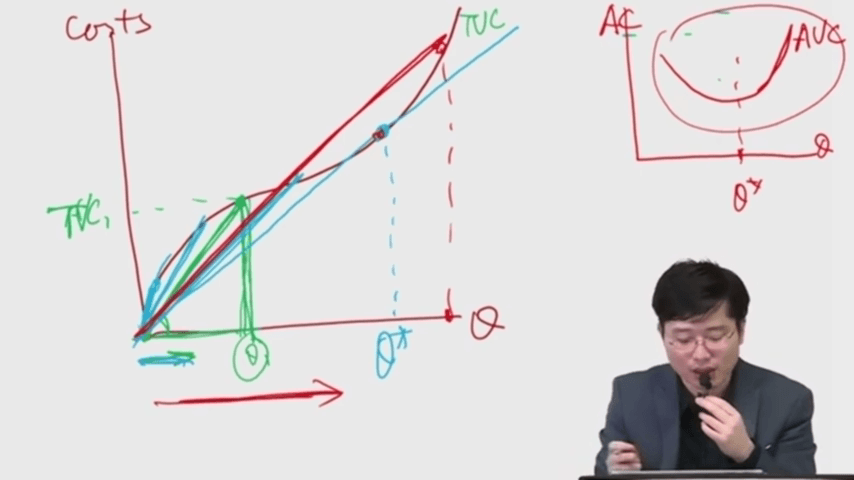 Costs
TVC
TVC₁
Q
Q*
Q
AC
AVC
Q
Q*